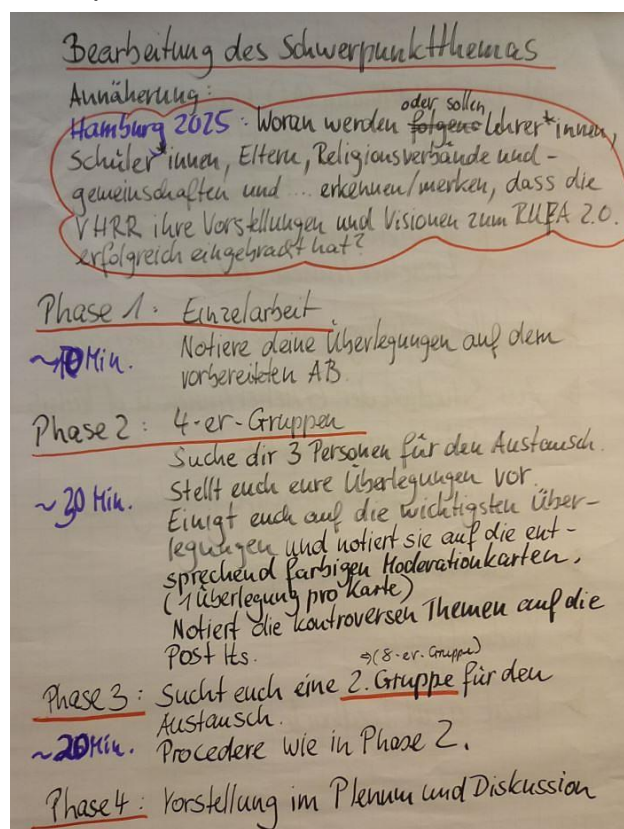 Bearbeitung des Schwerpunktthemas
Annäherung:
oder sollen
Hamburg 2025: Woran werden folgens Lehrer*innen,
Schüler*innen, Eltern, Religionsverbände und -
gemeinschaften und ... erkennen/merken, dass die
VHRR ihre Vorstellungen und Visionen zum RUFA 2.0.
erfolgreich eingebracht hat?
Phase 1: Einzelarbeit
Notiere deine Überlegungen auf dem
~10 Min.
vorbereiteten AB.
Phase 2: 4-er-Gruppen
Suche dir 3 Personen für den Austausch.
~30 Min. Stellt euch eure Überlegungen vor.
Einigt euch auf die wichtigsten Über-
legungen und notiert sie auf die ent-
sprechend farbigen Moderationkarten.
(1 Überlegung pro Karte)
Notiert die kontroversen Themen auf die
Post Its.
⇒(8-er-Gruppe)
Phase 3: Sucht euch eine 2. Gruppe für den
Austausch.
~20 Min. Procedere wie in Phase 2.
Phase 4: Vorstellung im Plenum und Diskussion